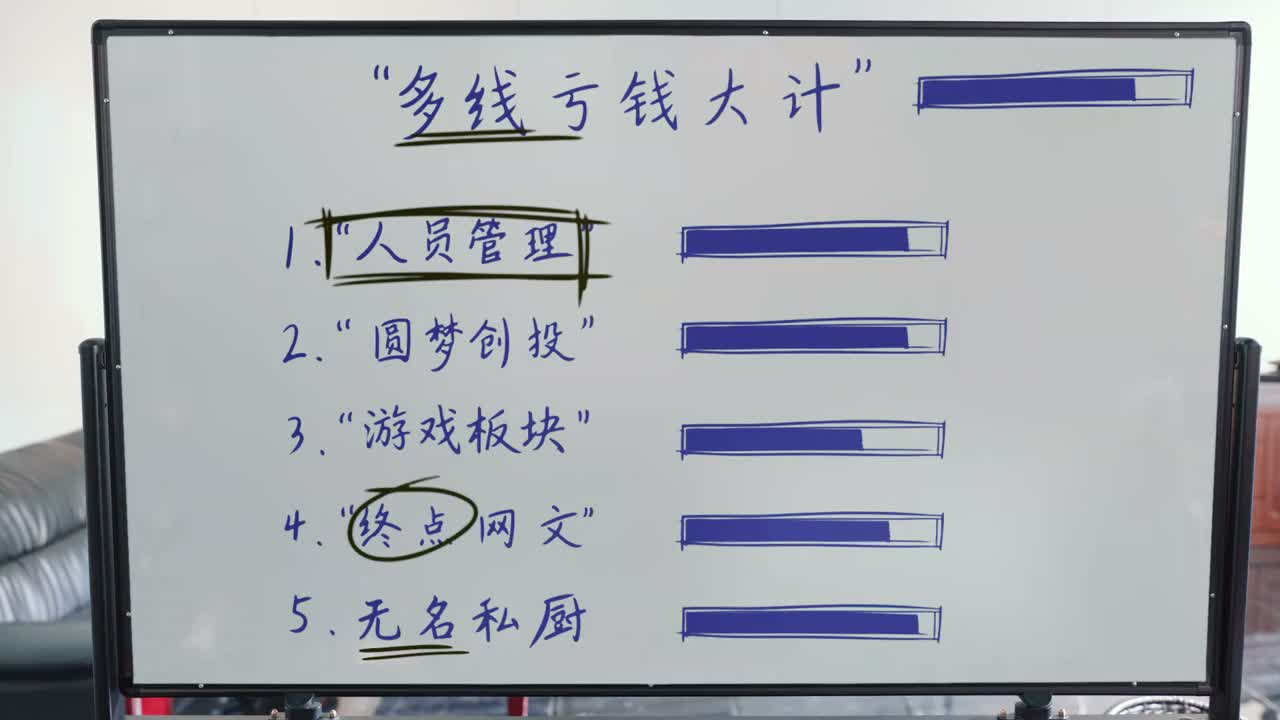 “多线亏钱大计”
1.“人员管理”
2.“圆梦创投”
3.“游戏板块”
4.“终点网文”
5.无名私厨